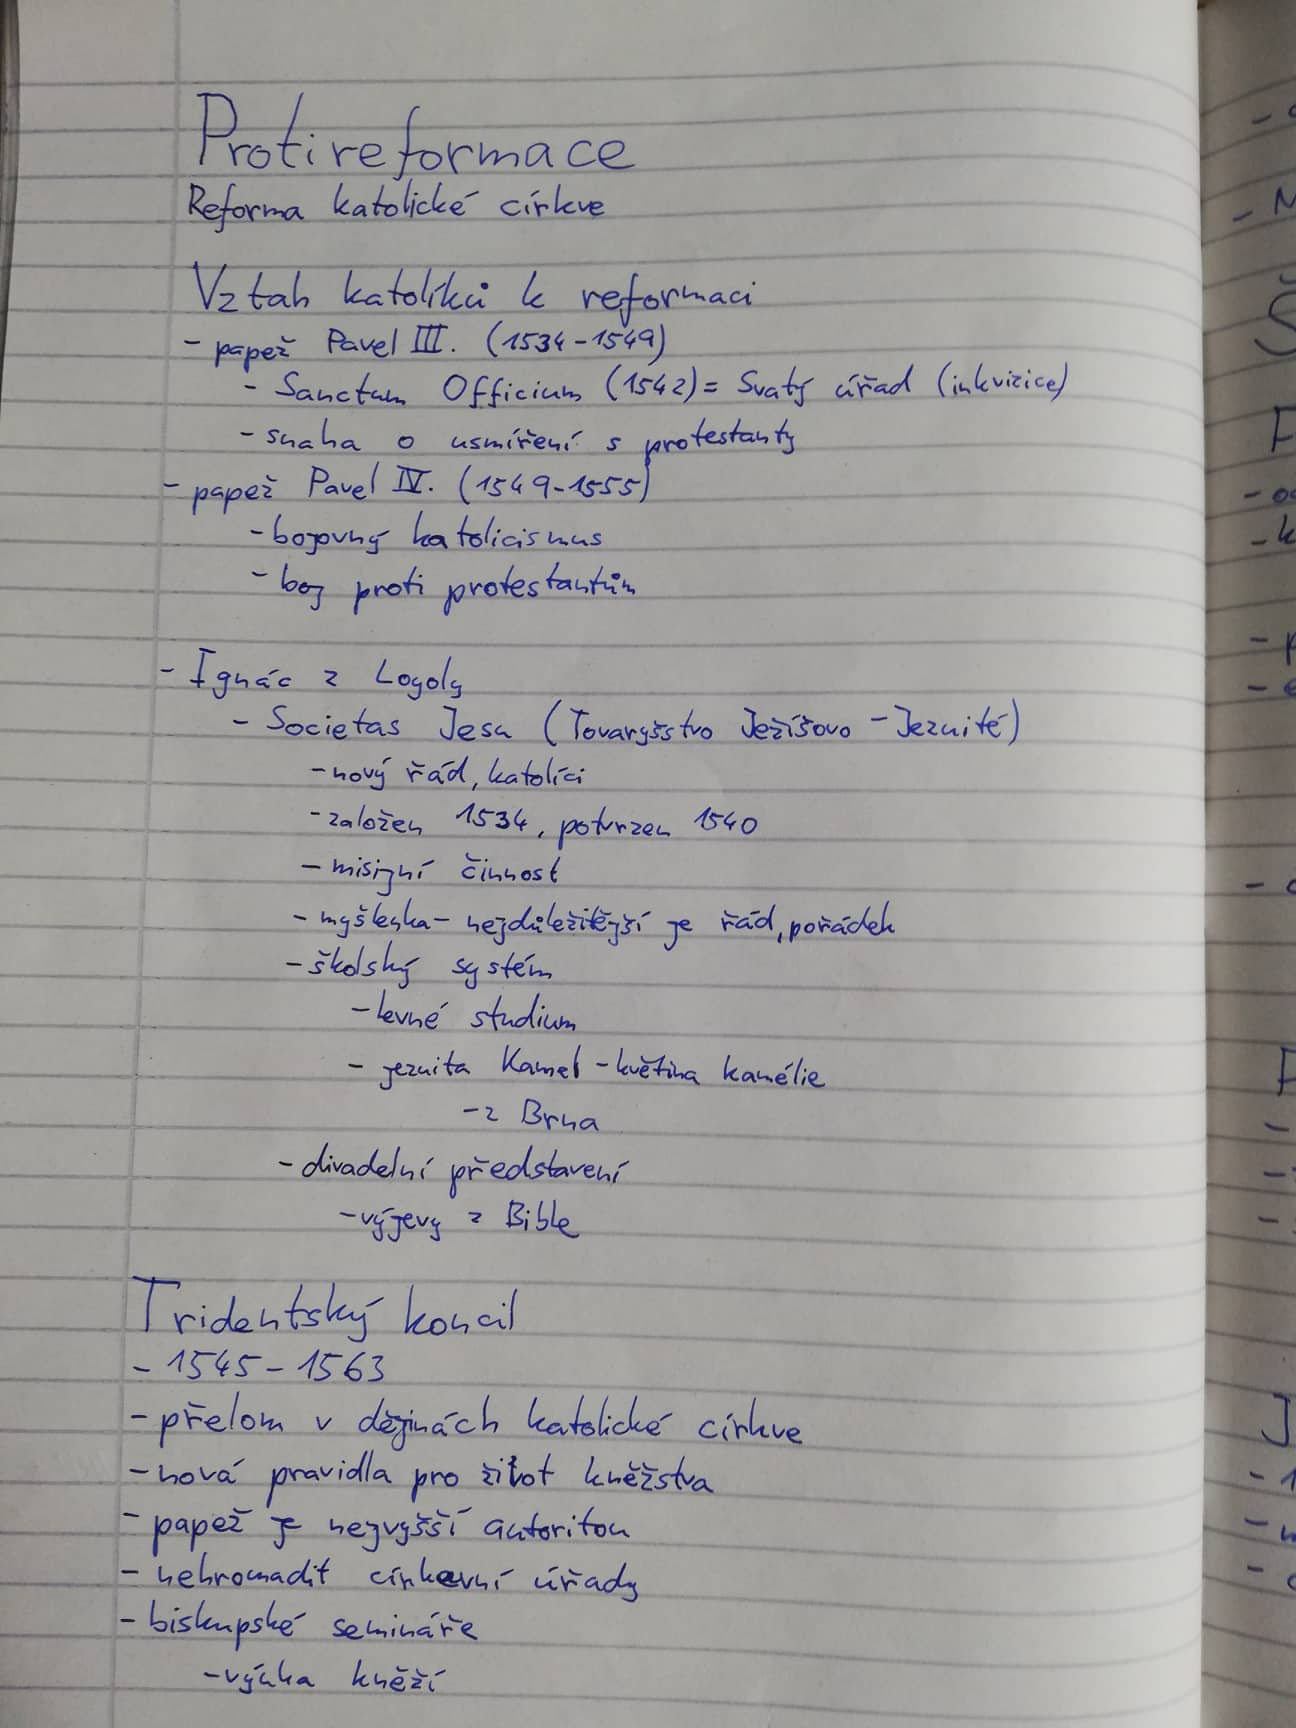 Protireformace
Reforma katolické církve
Vztah katolíků k reformaci
- papež Pavel III. (1534-1549)
- Sanctum Officium (1542) = Svatý úřad (inkvizice)
- snaha o usmíření s protestanty
- papež Pavel IV. (1549-1555)
- bojovný katolicismus
- boj proti protestantům
- Ignác z Loyoly
- Societas Jesu (Tovaryšstvo Ježíšovo - Jezuité)
- nový řád, katolíci
- založen 1534, potvrzen 1540
- misijní činnost
- myšlenka - nejdůležitější je řád, pořádek
- školský systém
- levné studium
- jezuita Kamel - květina kamélie
- z Brna
- divadelní představení
- výjevy z Bible
Tridentský koncil
- 1545 - 1563
- přelom v dějinách katolické církve
- nová pravidla pro život kněžstva
- papež je nejvyšší autoritou
- nehromadit církevní úřady
- biskupské semináře
- výuka kněží